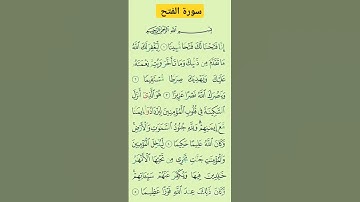 سورة الفتح
بِسْمِ اللَّهِ الرَّحْمَٰنِ الرَّحِيمِ
إِنَّا فَتَحْنَا لَكَ فَتْحًا مُّبِينًا ۝ لِّيَغْفِرَ لَكَ اللَّهُ
مَا تَقَدَّمَ مِن ذَنبِكَ وَمَا تَأَخَّرَ وَيُتِمَّ نِعْمَتَهُ
عَلَيْكَ وَيَهْدِيَكَ صِرَاطًا مُّسْتَقِيمًا ۝
وَيَنصُرَكَ اللَّهُ نَصْرًا عَزِيزًا ۝ هُوَ الَّذِي أَنزَلَ
السَّكِينَةَ فِي قُلُوبِ الْمُؤْمِنِينَ لِيَزْدَادُوا إِيمَانًا
مَّعَ إِيمَانِهِمْ وَلِلَّهِ جُنُودُ السَّمَاوَاتِ وَالْأَرْضِ
وَكَانَ اللَّهُ عَلِيمًا حَكِيمًا ۝ لِّيُدْخِلَ الْمُؤْمِنِينَ
وَالْمُؤْمِنَاتِ جَنَّاتٍ تَجْرِي مِن تَحْتِهَا الْأَنْهَارُ
خَالِدِينَ فِيهَا وَيُكَفِّرَ عَنْهُمْ سَيِّئَاتِهِمْ
وَكَانَ ذَٰلِكَ عِندَ اللَّهِ فَوْزًا عَظِيمًا ۝